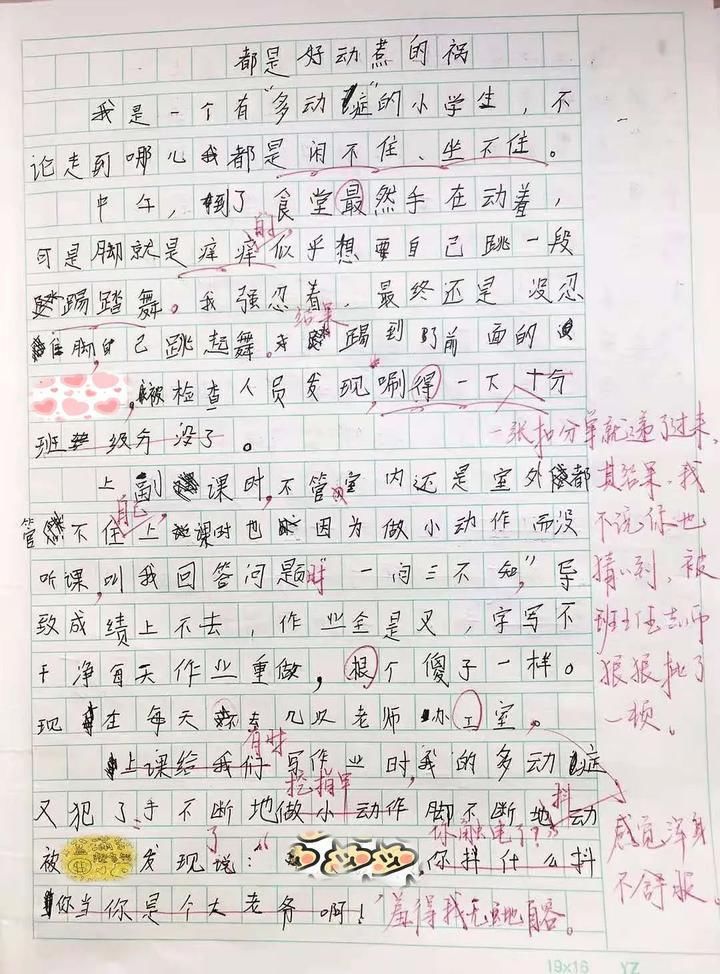 都是好动惹的祸
我是一个有“多动症”的小学生，不
论走到哪儿我都是闲不住、坐不住。
中午，到了食堂最然手在动着，
可是脚就是痒痒的似乎想要自己跳一段
踢踏舞。我强忍着，最终还是没忍
住脚自己跳起舞。结果踢到了前面的
，被检查人员发现，唰得一下十分
班级分没了。
一张扣分单就递了过来，
上副课时，不管室内还是室外都
其结果，我
管不住自己上课时也因为做小动作而没
不说你也
听课，叫我回答问题时“一问三不知”，导
猜到，被
致成绩上不去，作业全是叉，字写不
班主任老师
干净每天作业重做，根个傻子一样。
狠狠批了
现在每天几以老师办工室。
一顿。
上课给我们有时写作业时，我的多动症
又犯了手不断地做小动作挖指甲脚不断地动抖
感觉浑身
不舒服。
被发现了说：“你触电了？？你抖什么抖
你当你是个大老爷啊！羞得我无地自容。
19×16 YZ